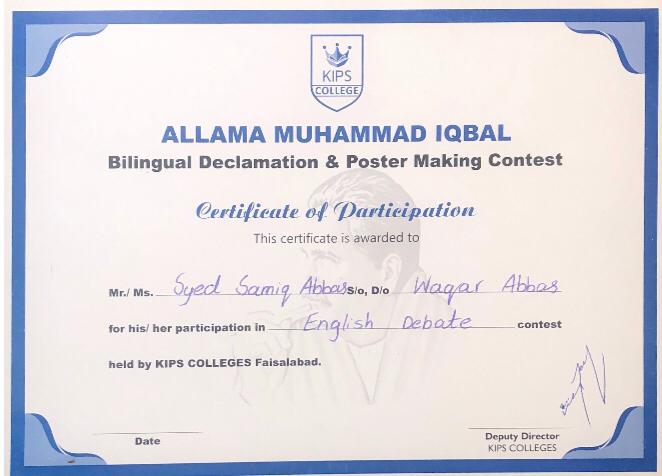 KIPS
COLLEGE
ALLAMA MUHAMMAD IQBAL
Bilingual Declamation & Poster Making Contest
Certificate of Participation
This certificate is awarded to
Mr./ Ms. Syed Samiq Abbas S/o, D/o Waqar Abbas
for his/ her participation in English Debate contest
held by KIPS COLLEGES Faisalabad.
Date
Deputy Director
KIPS COLLEGES